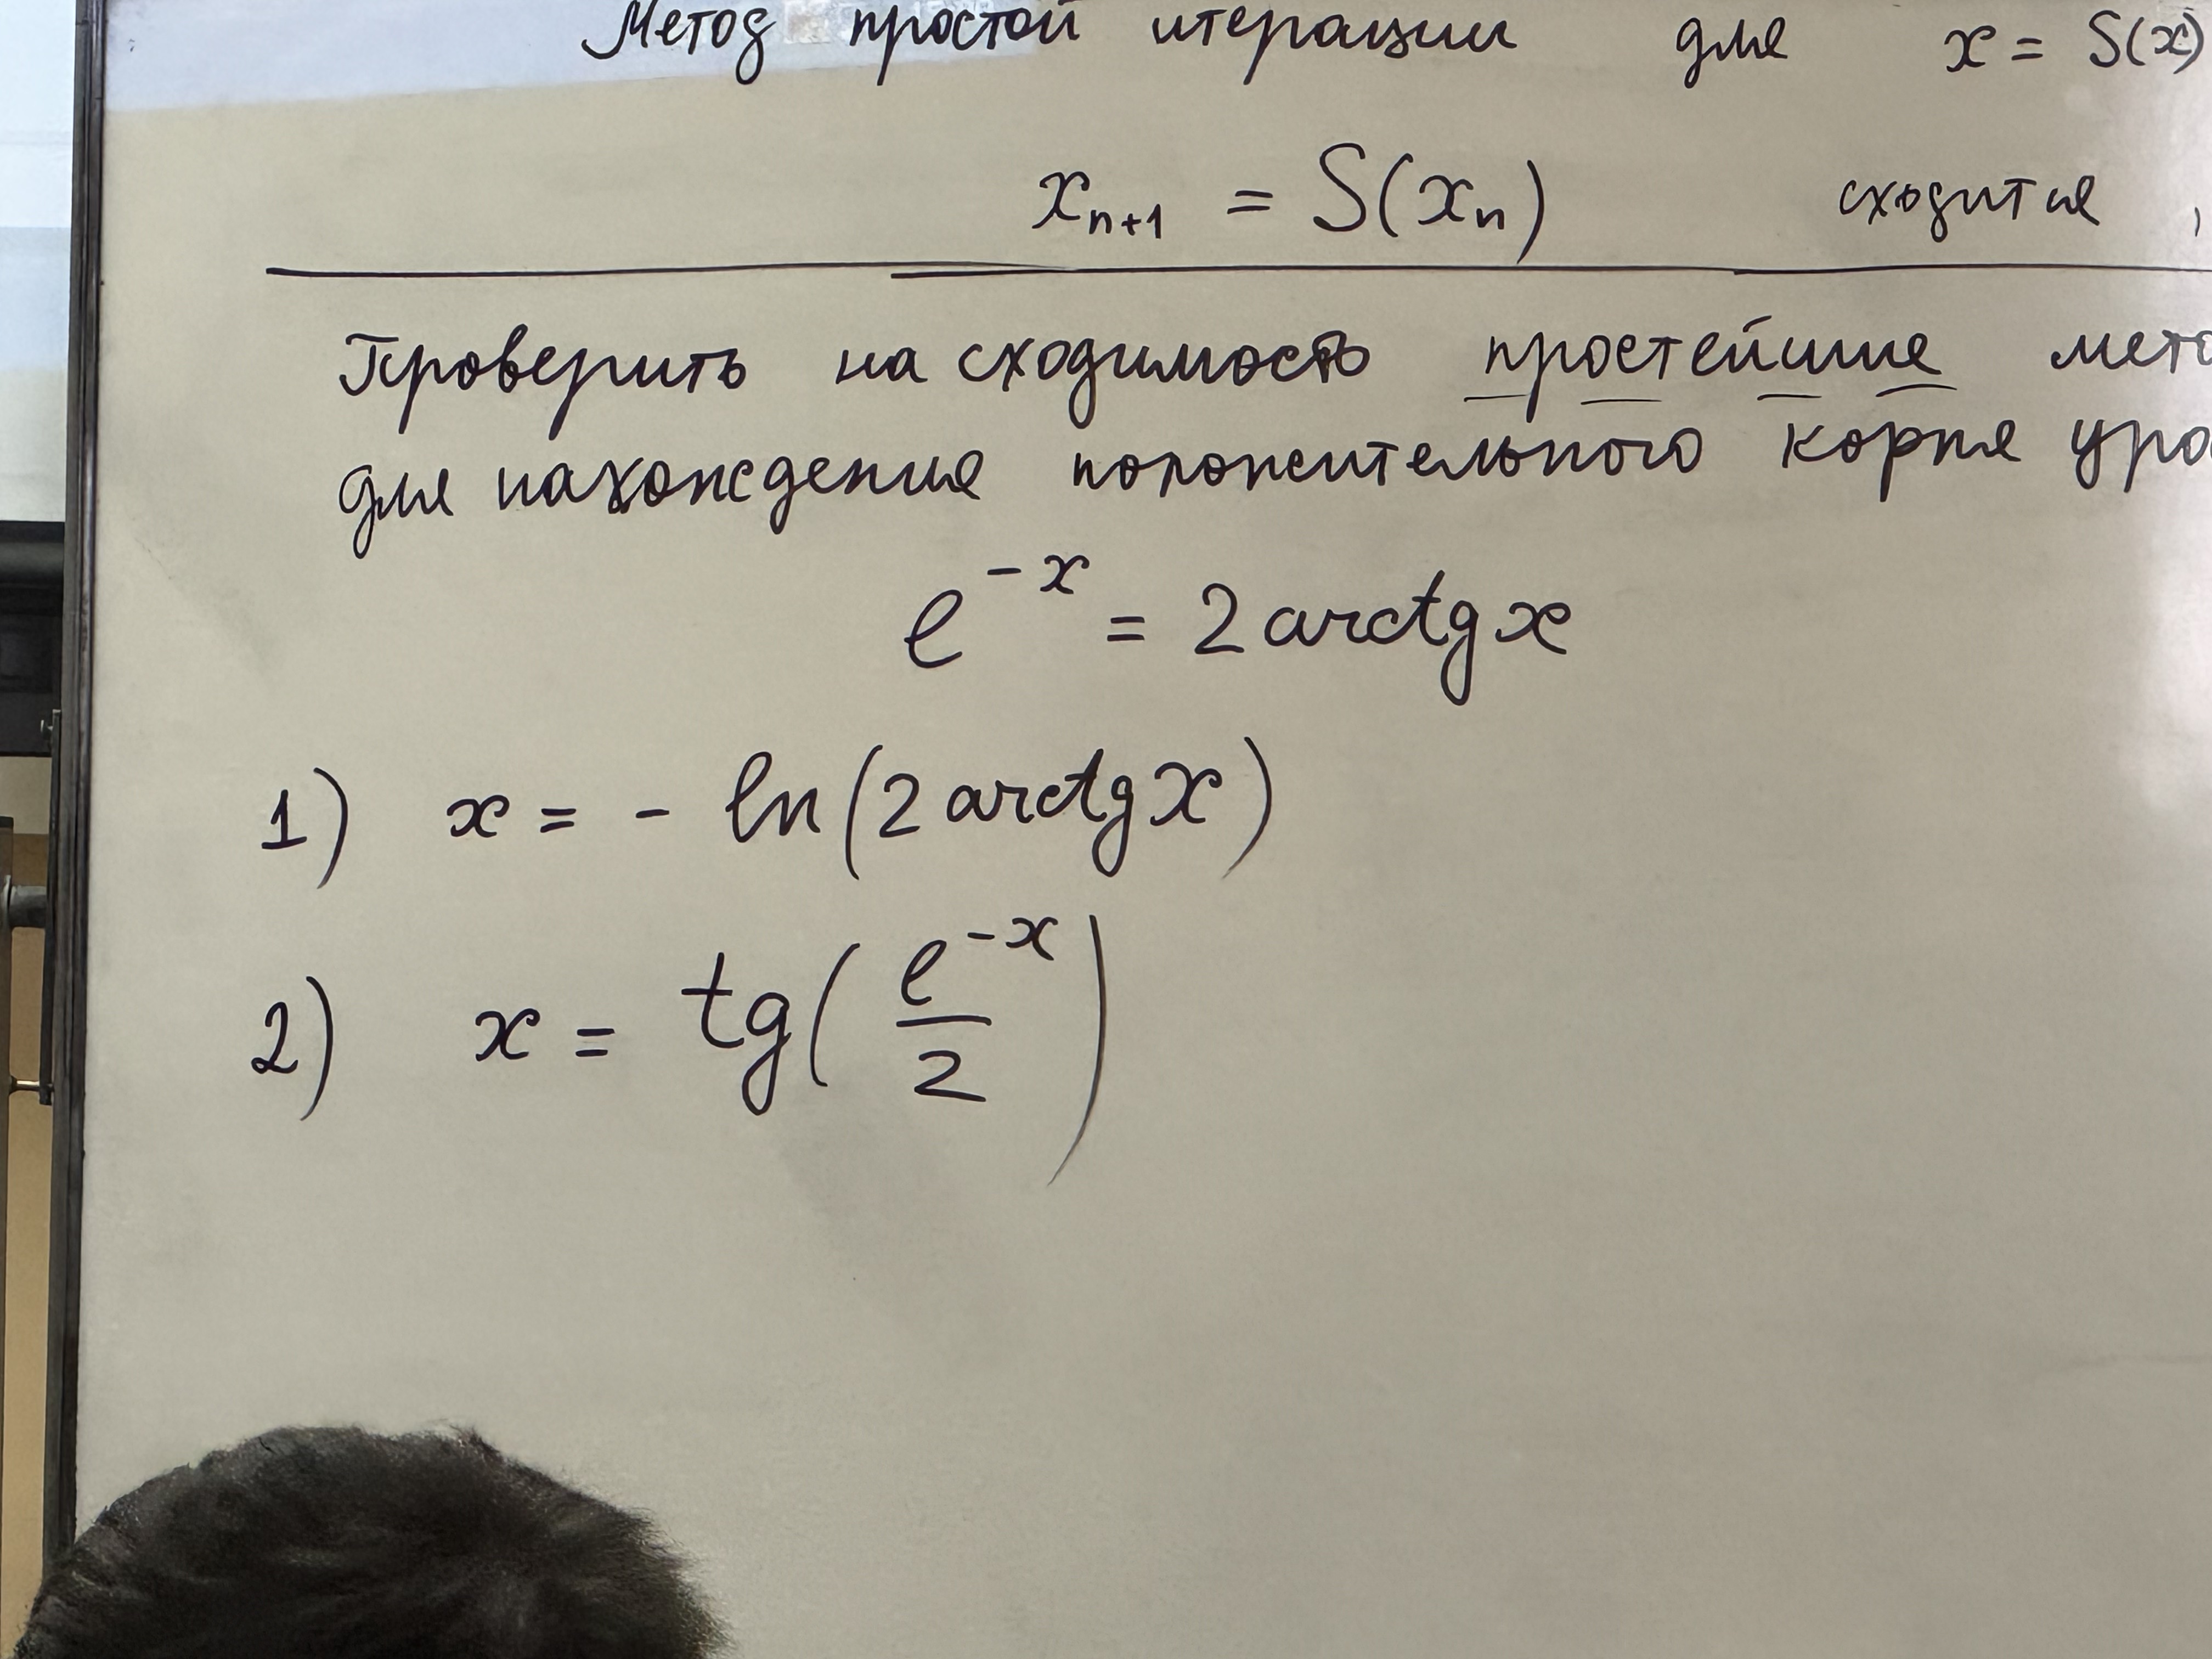 Метод простой итерации для x = S(x)
xₙ₊₁ = S(xₙ) сходится ,
Проверить на сходимость простейшие мето
для нахождения положительного корня ура
e^{-x} = 2 arctg x
1) x = - ln(2 arctg x)
2) x = tg(e^{-x}/2)